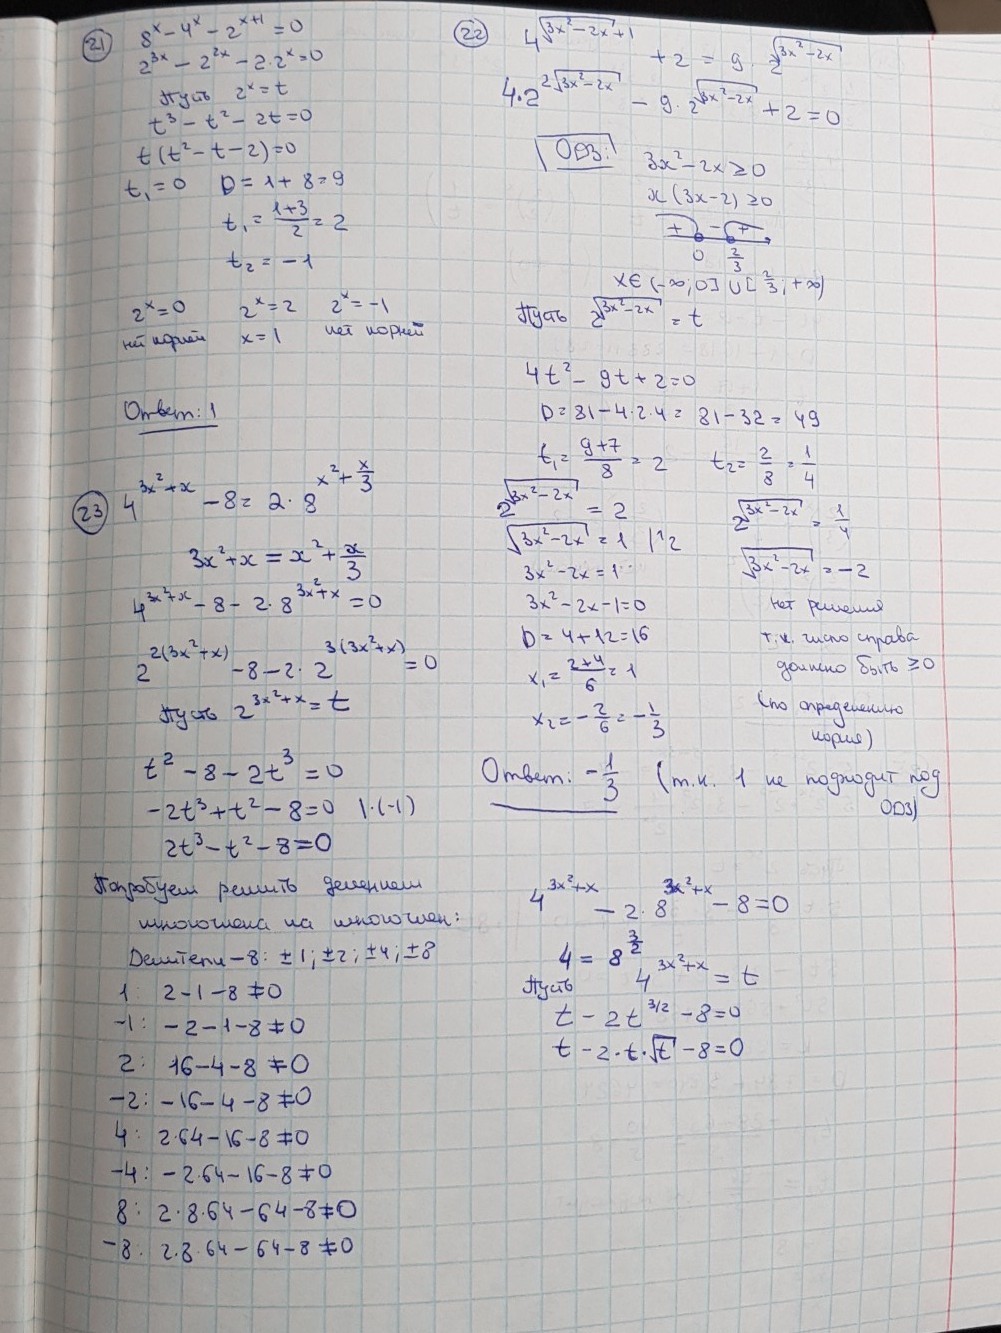 21) 8^x - 4^x - 2^{x+1} = 0
2^{3x} - 2^{2x} - 2·2^x = 0
Пусть 2^x = t
t^3 - t^2 - 2t = 0
t(t^2 - t - 2) = 0
t_1 = 0 D = 1 + 8 = 9
t_1 = \frac{1+3}{2} = 2
t_2 = -1
2^x = 0 2^x = 2 2^x = -1
нет корней x = 1 нет корней
Ответ: 1
23) 4^{3x^2+x} - 8 = 2·8^{x^2+\frac{x}{3}}
3x^2 + x = x^2 + \frac{x}{3}
4^{3x^2+x} - 8 - 2·8^{3x^2+x} = 0
2^{2(3x^2+x)} - 8 - 2·2^{3(3x^2+x)} = 0
Пусть 2^{3x^2+x} = t
t^2 - 8 - 2t^3 = 0
-2t^3 + t^2 - 8 = 0 |·(-1)
2t^3 - t^2 - 8 = 0
Попробуем решить делением
многочлена на многочлен:
Делители -8: ±1; ±2; ±4; ±8
1: 2-1-8 ≠ 0
-1: -2-1-8 ≠ 0
2: 16-4-8 ≠ 0
-2: -16-4-8 ≠ 0
4: 2·64-16-8 ≠ 0
-4: -2·64-16-8 ≠ 0
8: 2·8·64-64-8 ≠ 0
-8: 2·8·64-64-8 ≠ 0
22) 4^{\sqrt{3x^2-2x}+1} + 2 = 9·2^{\sqrt{3x^2-2x}}
4·2^{2\sqrt{3x^2-2x}} - 9·2^{\sqrt{3x^2-2x}} + 2 = 0
ОДЗ: 3x^2 - 2x ≥ 0
x(3x-2) ≥ 0
+ - +
0 \frac{2}{3}
x∈(-∞;0]∪[\frac{2}{3};+∞)
Пусть 2^{\sqrt{3x^2-2x}} = t
4t^2 - 9t + 2 = 0
D = 81 - 4·2·4 = 81 - 32 = 49
t_1 = \frac{9+7}{8} = 2 t_2 = \frac{2}{8} = \frac{1}{4}
2^{\sqrt{3x^2-2x}} = 2 2^{\sqrt{3x^2-2x}} = \frac{1}{4}
\sqrt{3x^2-2x} = 1 |^2 \sqrt{3x^2-2x} = -2
3x^2 - 2x = 1 нет решения
3x^2 - 2x - 1 = 0 т.к. число справа
D = 4 + 12 = 16 должно быть ≥ 0
x_1 = \frac{2+4}{6} = 1 (по определению
x_2 = -\frac{2}{6} = -\frac{1}{3} корня)
Ответ: -\frac{1}{3} (т.к. 1 не подходит под
ОДЗ)
4^{3x^2+x} - 2·8^{3x^2+x} - 8 = 0
4 = 8^{\frac{3}{2}}
Пусть 4^{3x^2+x} = t
t - 2t^{3/2} - 8 = 0
t - 2·t·\sqrt{t} - 8 = 0